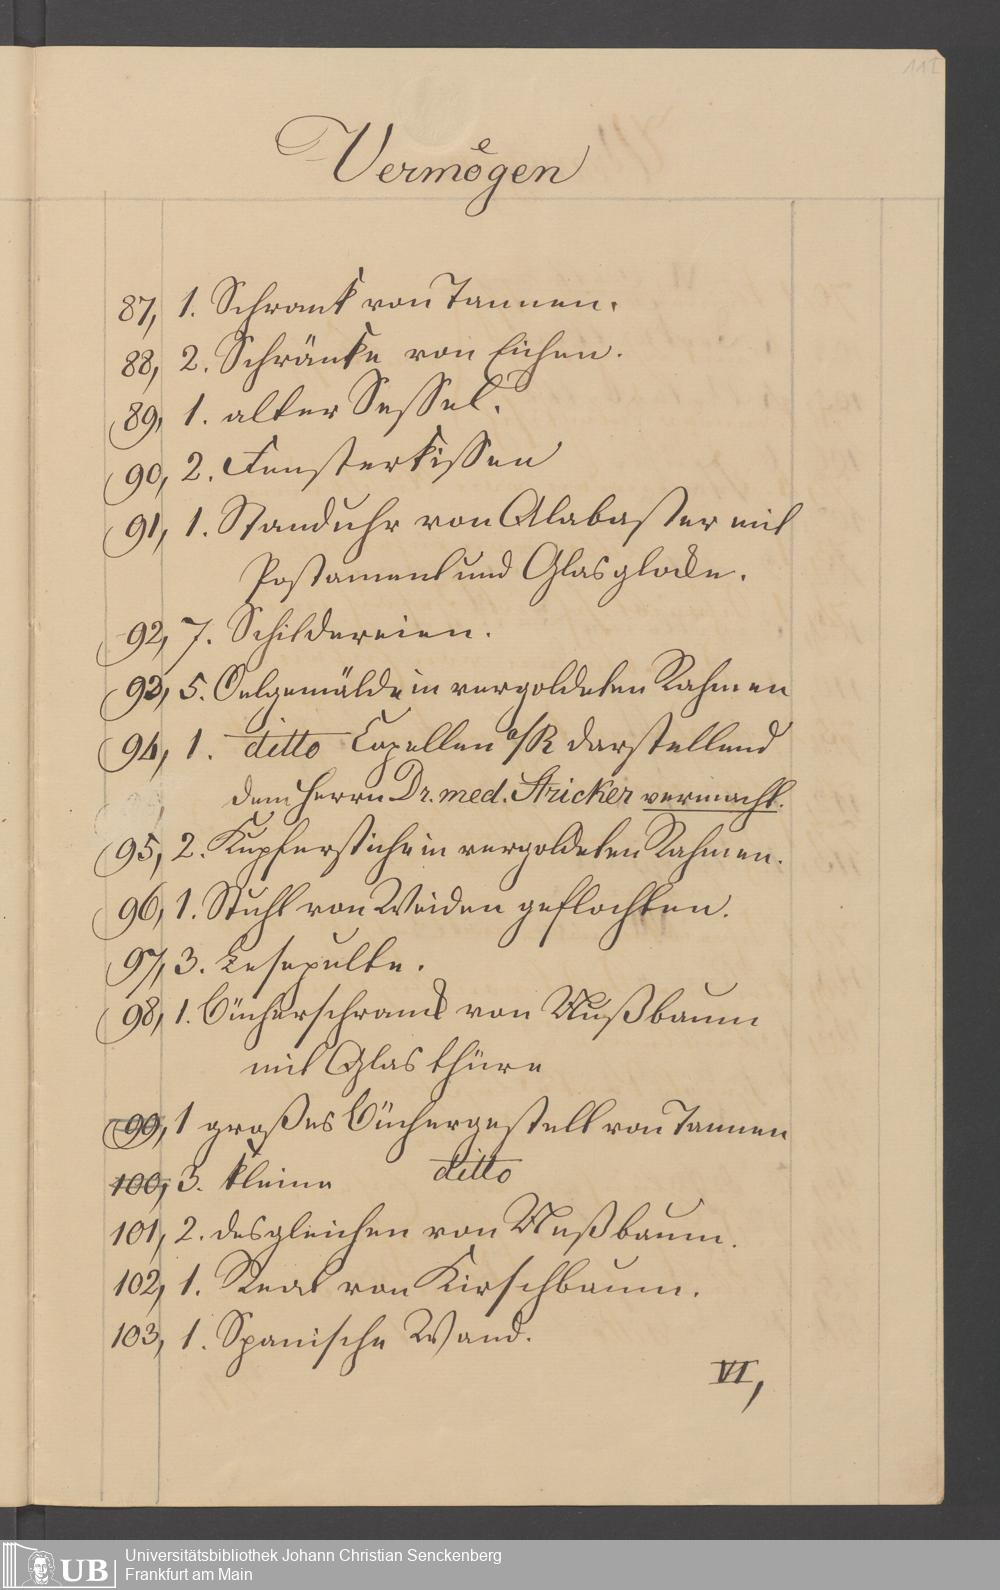 111
Vermögen
87, 1. Schrank von Tannen.
88, 2. Schränke von Eichen.
89, 1. alter Sessel.
90, 2. Fensterkissen
91, 1. Standuhr von Alabaster mit
Postament und Glasglocke.
92, 7. Schildereien.
93, 5. Oelgemälde in vergoldeten Rahmen
94, 1. ditto Capellen a/R darstellend
dem Herrn Dr. med. Stricker vermacht.
95, 2. Kupferstiche in vergoldeten Rahmen.
96, 1. Stuhl von Weiden geflochten.
97, 3. Lesepulte.
98, 1. Bücherschrank von Nußbaum
mit Glasthüre
99, 1 großes Büchergestell von Tannen
100, 3. kleine ditto
101, 2. desgleichen von Nußbaum.
102, 1. Real von Kirschbaum.
103, 1. Spanische Wand.
VI,
UB
Universitätsbibliothek Johann Christian Senckenberg
Frankfurt am Main